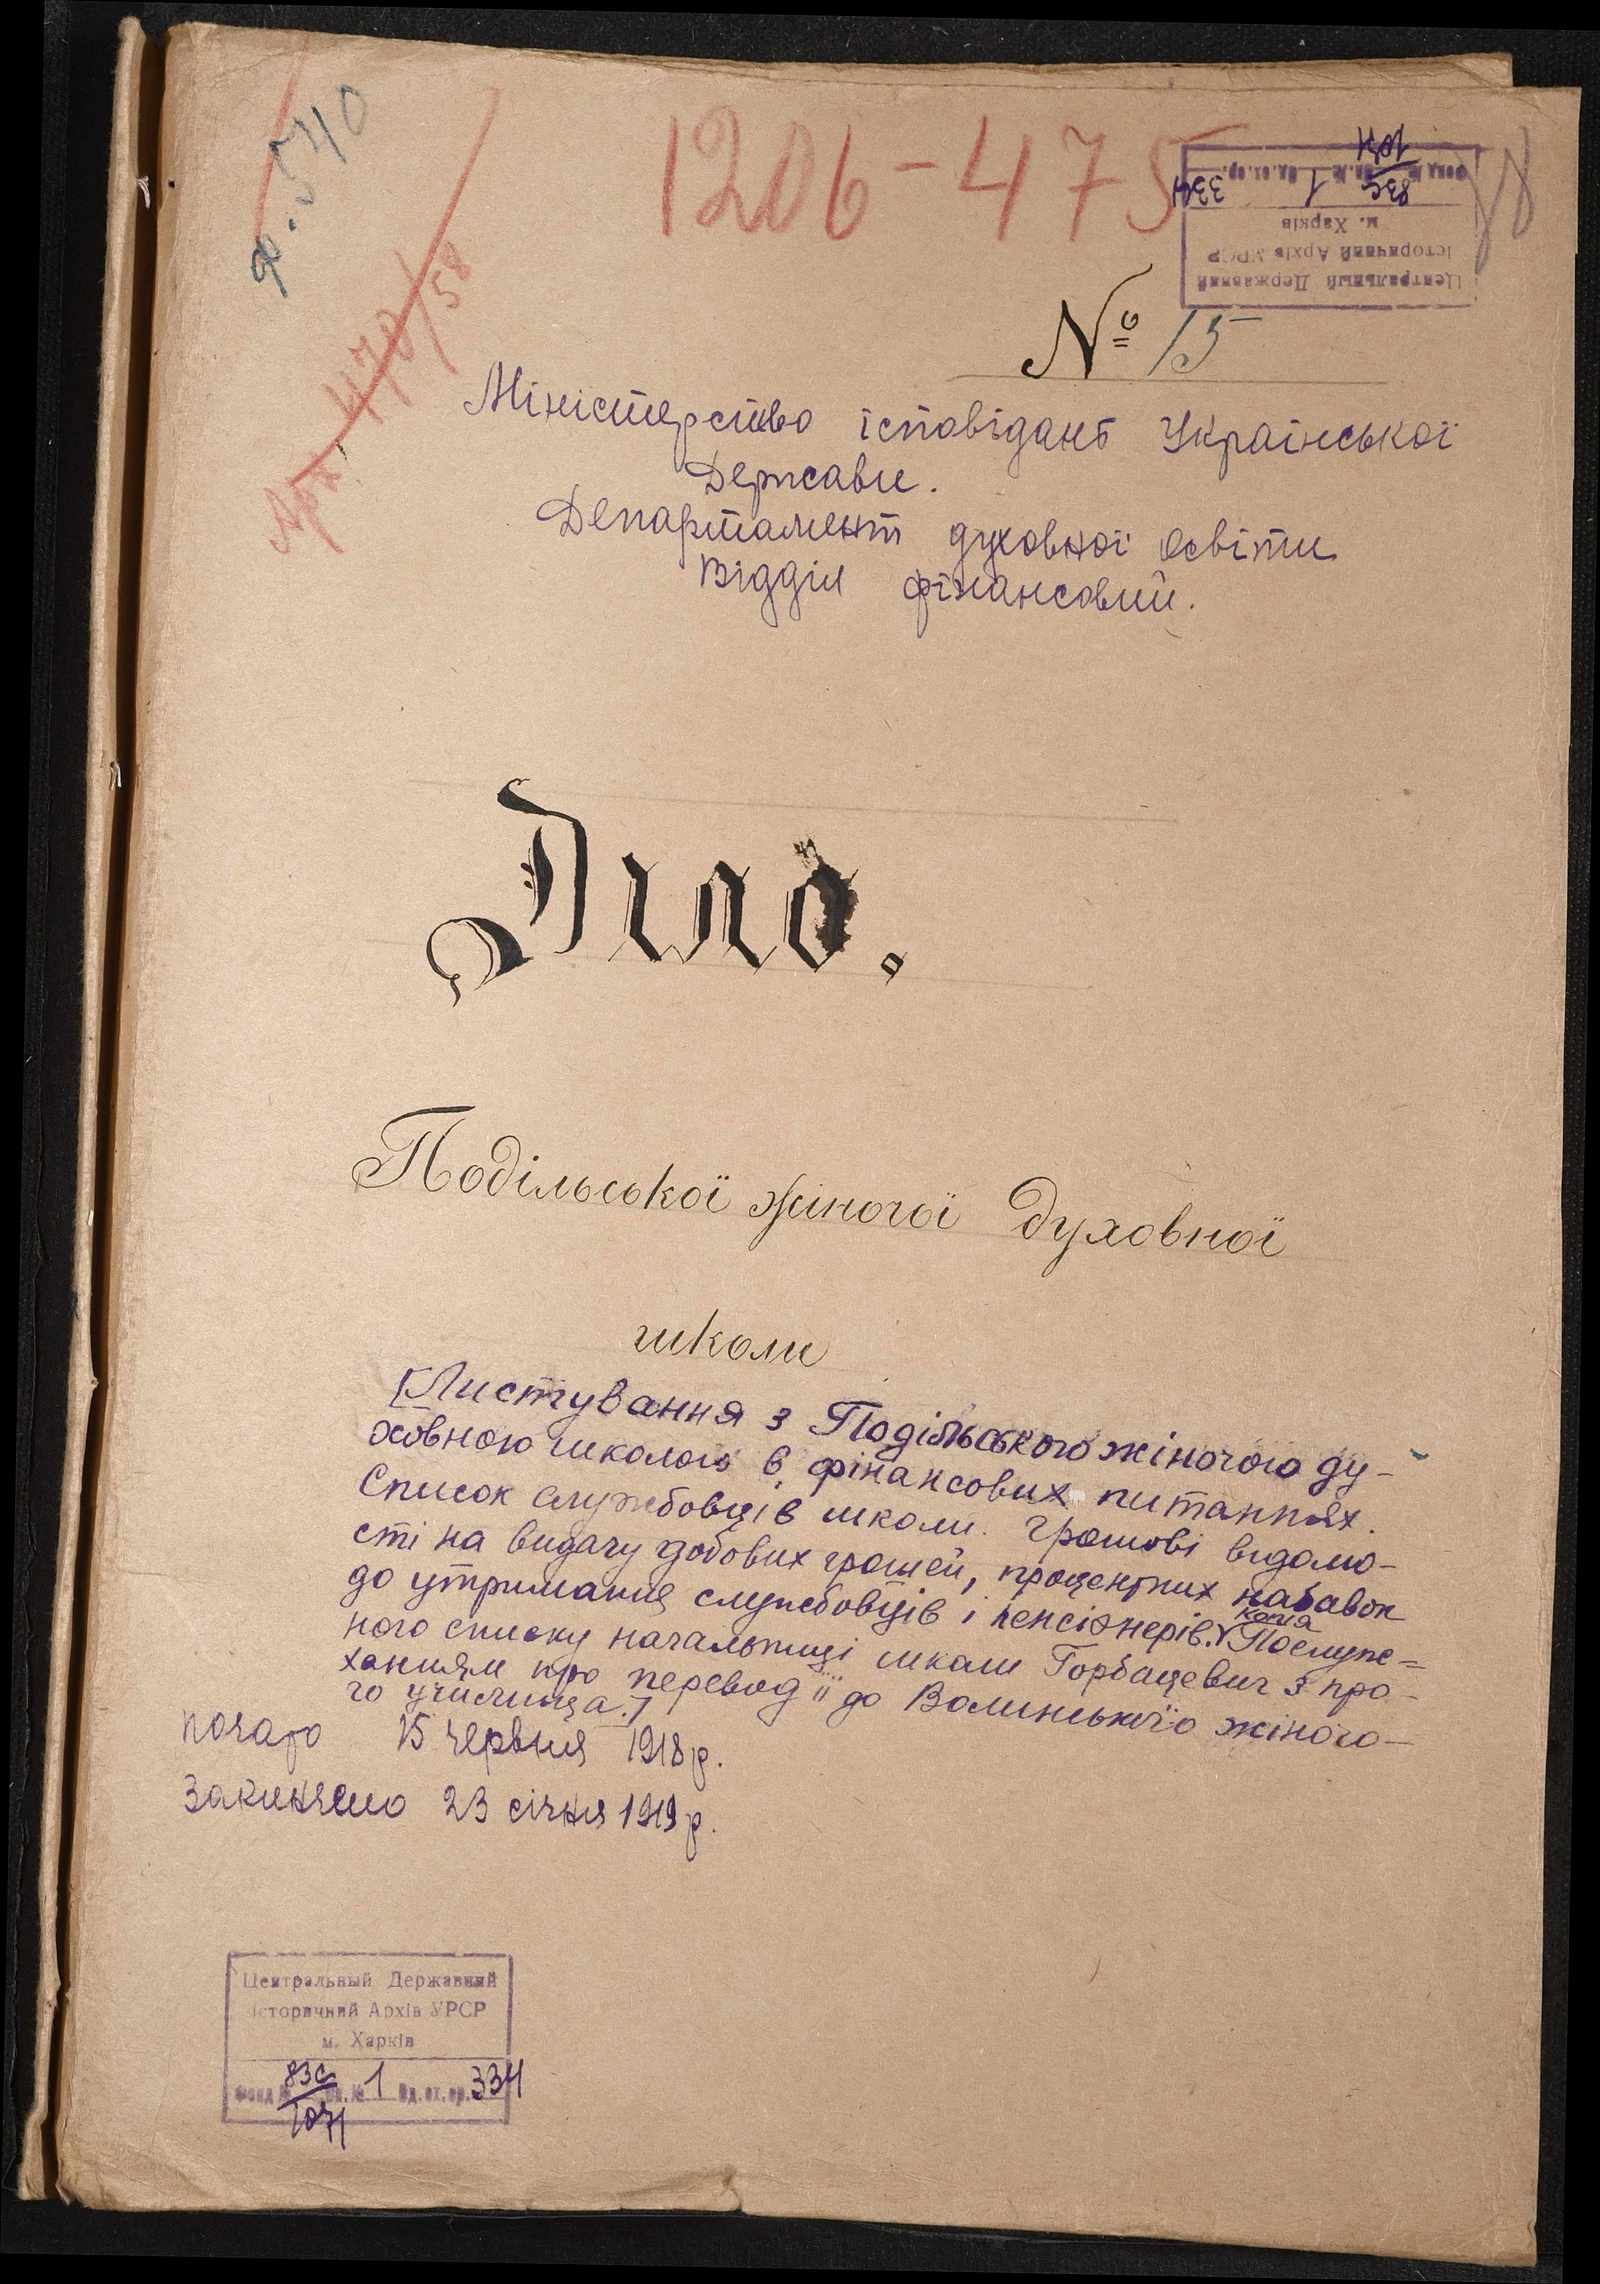 ф. 540
1206-475
Арх. 470/58
Центральный Державний
історичний Архів УРСР
м. Харків
Фонд № 83с оп. № 1 Од. зб. 334
№ 15
Міністерство ісповідань Української
Держави.
Департамент духовної освіти
Відділ фінансовий.
Діло.
Подільської жіночої духовної
школи
[Листування з Подільською жіночою ду-
ховною школою в фінансових питаннях.
Список службовців школи. Грошові відомо-
сті на видачу добових грошей, процентних набавок
до утримання службовців і пенсіонерів. Копія Послуж=
ного списку начальниці школи Горбацевич з про-
ханням про перевод її до Волинського жіночо-
го училища.]
почато 15 червня 1918 р.
Закінчено 23 січня 1919 р.
Центральный Державний
історичний Архів УРСР
м. Харків
Фонд № 83с оп. № 1 Од. зб. 334
1071